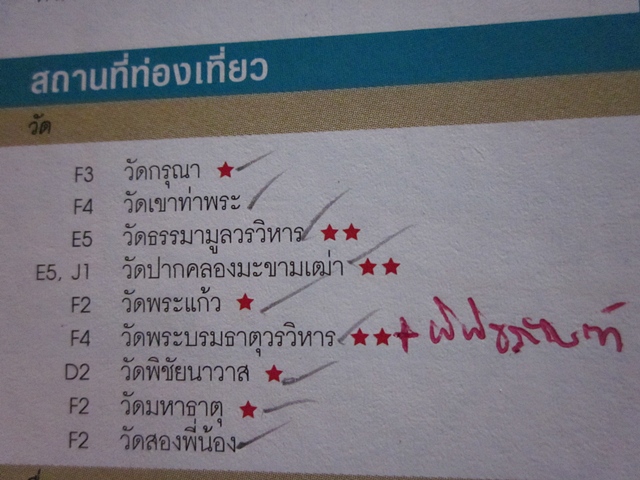 สถานที่ท่องเที่ยว
วัด
F3 วัดกรุณา ★
F4 วัดเขาท่าพระ
E5 วัดธรรมามูลวรวิหาร ★★
E5, J1 วัดปากคลองมะขามเฒ่า ★★
F2 วัดพระแก้ว ★
F4 วัดพระบรมธาตุวรวิหาร ★★ + พิพิธภัณฑ์
D2 วัดพิชัยนาวาส ★
F2 วัดมหาธาตุ ★
F2 วัดสองพี่น้อง